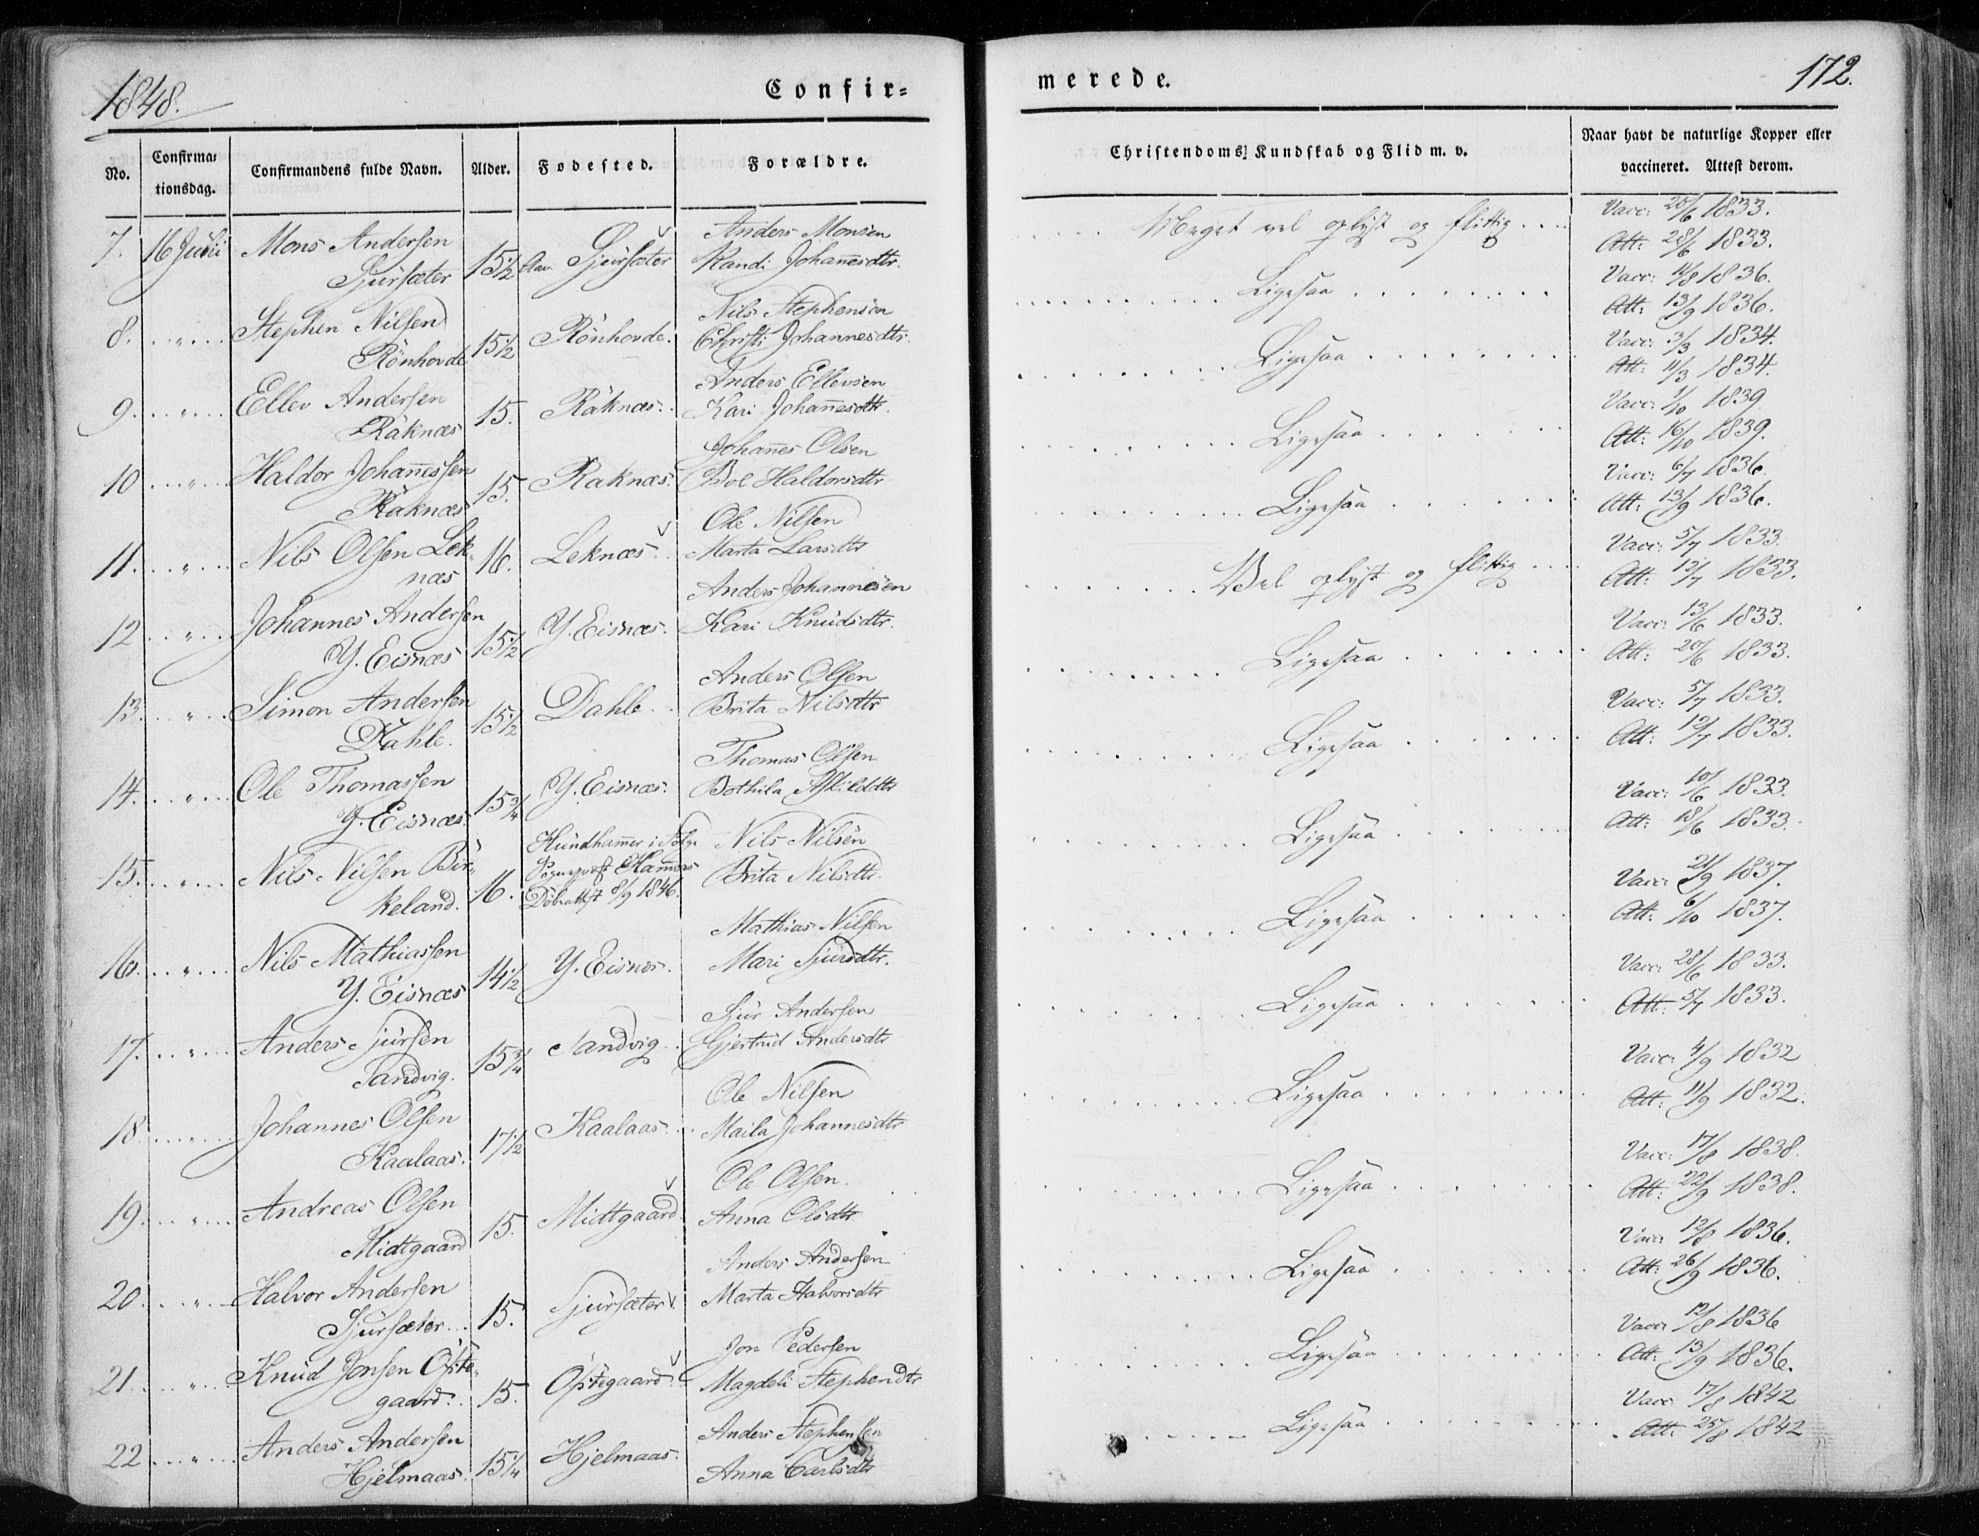 1848.
Confir=
merede.
172.
No.
Confirma-
tionsdag.
Confirmandens fulde Navn.
Alder.
Fødested.
Forældre.
Christendoms Kundskab og Flid m. v.
Naar havt de naturlige Kopper eller
vaccineret. Attest derom.
7. 16 Juli Mons Andersen 15 1/2 Sjursæter Anders Monsen Meget vel oplyst og flittig Vacc: 20/6 1833.
Sjursæter Randi Johannesdtr. Att: 28/6 1833.
8. " Stephen Nilsen 15 1/2 Rönhovde. Nils Stephensen Ligesaa Vacc: 11/8 1836.
Rönhovde Christi Johannesdtr. Att: 13/9 1836.
9. " Ellev Andersen 15. Räknæs. Anders Ellevsen Ligesaa Vacc: 3/3 1834.
Räknæs Kari Johannesdtr. Att: 11/3 1834.
10 " Haldor Johannessen 15. Raknæs. Johannes Olsen Ligesaa Vacc: 1/10 1839.
Räknæs Boe Haldorsdtr Att: 16/10 1839.
11. " Nils Olsen Lek- 16. Leknæs. Ole Nilsen Ligesaa Vacc: 6/7 1836.
næs Marta Larsdtr Att: 13/9 1836.
12 " Johannes Andersen 15 1/2 Y. Eisnæs. Anders Johannesen Vel oplyst og flittig Vacc: 5/7 1833.
Y. Eisnæs Kari Knudsdtr. Att: 13/7 1833.
13. " Simon Andersen 15 1/2 Dahle. Anders Olsen Ligesaa Vacc: 13/6 1833.
Dahle. Brita Nilsdtr Att: 20/6 1833.
14. " Ole Thomassen 15 3/4 Y. Eisnæs. Thomas Olsen Ligesaa Vacc: 5/7 1833.
Y. Eisnæs. Bothila Att: 12/7 1833.
15. " Nils Nilsen Bir- 16. Hundhamer i Følge Nils Nilsen Ligesaa Vacc: 10/6 1833.
keland. Hamers Brita Nilsdtr. Att: 18/6 1833.
Döbeattest 8/9 1846.
16. " Nils Mathiassen 14 1/2 Y. Eisnæs. Mathias Nilsen Ligesaa Vacc: 21/9 1837.
Y. Eisnæs Mari Sjursdtr. Att: 6/10 1837.
17. " Anders Sjursen 15 3/4 Sandvig. Sjur Andersen Ligesaa Vacc: 28/6 1833.
Sandvig. Gjertrud Andersdtr Att: 5/7 1833.
18. " Johannes Olsen 17 1/2 Kaalaas. Ole Nilsen Ligesaa Vacc: 4/9 1832
Kaalaas. Maila Johannesdtr Att: 11/9 1832.
19. " Andreas Olsen 15. Midtgaard Ole Olsen. Ligesaa Vacc: 17/8 1838.
Midtgaard Anna Olsdtr Att: 22/9 1838.
20. " Halvor Andersen 15. Sjursæter Anders Andersen Ligesaa Vacc: 12/8 1836.
Sjursæter Marta Halvorsdtr Att: 26/9 1836.
21. " Knud Jonsen Öste- 15. Östegaard Jon Pedersen Ligesaa Vacc: 12/8 1836
gaard. Magdeli Stephendtr Att: 13/9 1836.
22 " Anders Andersen 15 1/4 Hjelmaas. Anders Stephensen Ligesaa Vacc: 17/8 1842
Hjelmaas. Anna Carlsdtr Att: 25/8 1842